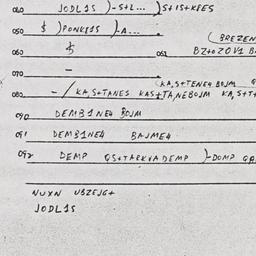 040 JODL1S )-S+L... )S+IS+KEES
050 $ )PONKE1S )-A...
(BREZEN
060 $ 061 BZ+OZOV1 B
070 -
(KA,S+TENE4 BOJM
080 - / KA,S+TANES KAS+TA,NEBOJM KA,S+T+
090 DEMB1NE4 BOJM
091 DEMB1NE4 BAJME4
092 DEMP QS+TARKVA DEMP )-DOMP QA
NUXN UBZEJG+
JODL1S